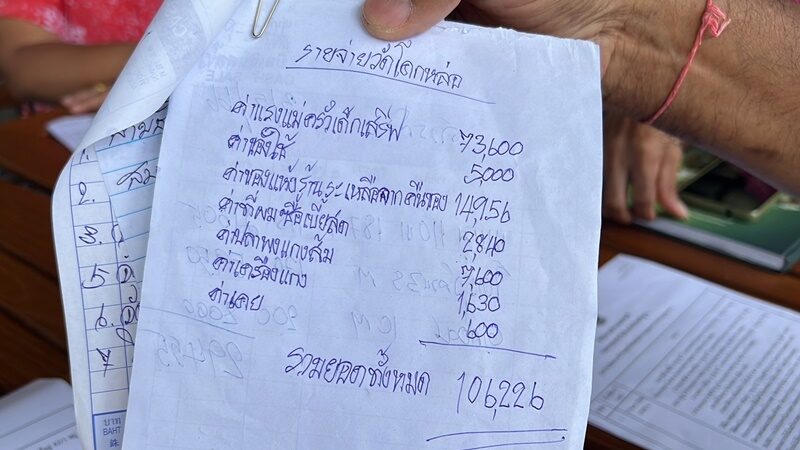 รายจ่ายวัดโคกหล่อ
ค่าแรงแม่ครัวเด็กเสริฟ 73,600
ค่าของใช้ 5,000
ค่าของแห้งร้านระเหลือจากคืนของ 14,956
ค่าที่ผมซื้อเบี้ยสด 2,840
ค่าปลาพงแกงส้ม 7,600
ค่าเครื่องแกง 1,630
ค่าเคย 600
รวมยอดทั้งหมด 106,226
บาท
BAHT
銖